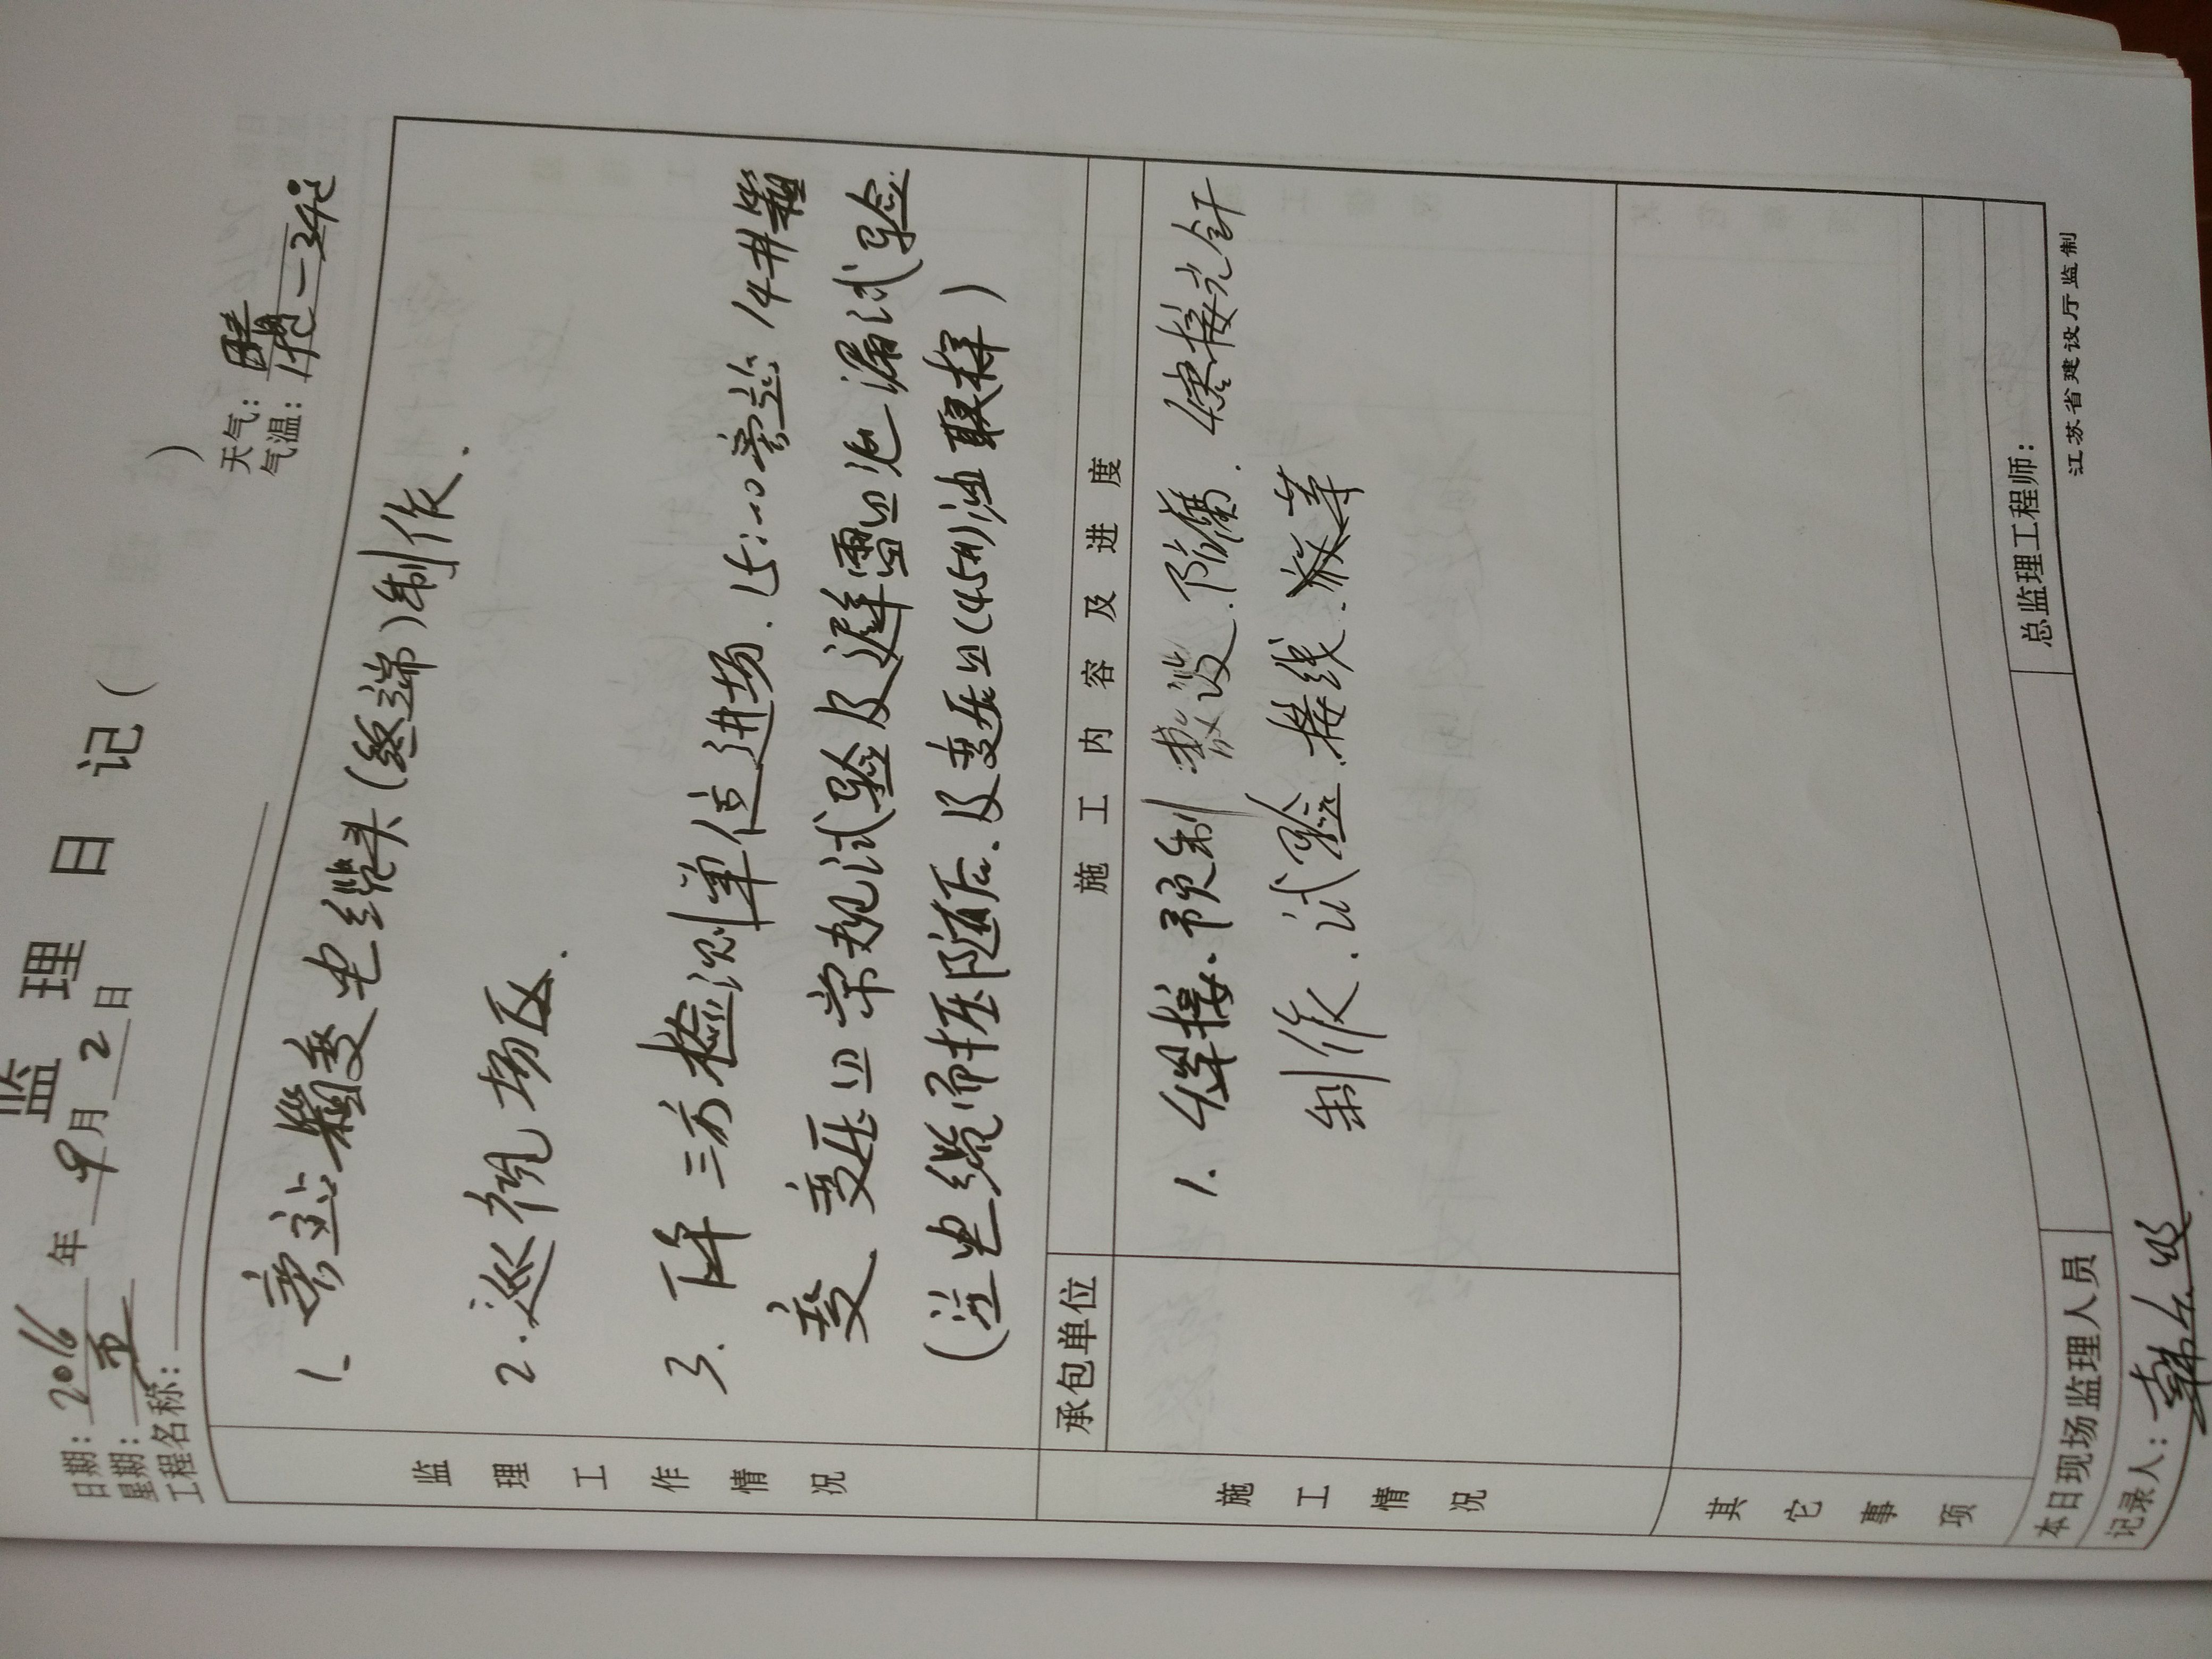 监理日记( )
日期:2016年9月2日
天气:晴
星期:五
气温:19℃-34℃
工程名称:
监理工作情况
1、旁站箱变电缆头(终端)制作.
2.巡视场区.
3.下午三方检测单位进场.15:00旁站14#箱
变、变压器常规试验及避雷器泄漏试验
(注电缆耐压随后、及变压器(45#)油取样)
承包单位
施工内容及进度
施工情况
1.焊接、预制 敷设.防腐.熔接光纤
制作.试验.接线.等
其它事项
本日现场监理人员
总监理工程师:
记录人:
江苏省建设厅监制